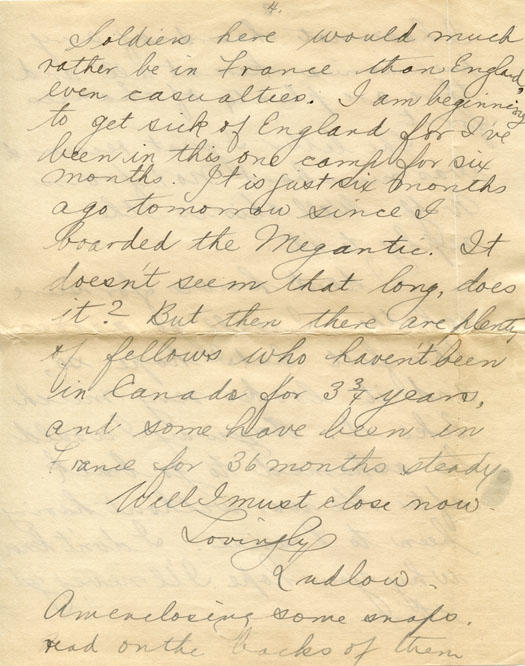 4.
Soldiers here would much
rather be in France than England,
even casualties. I am beginning
to get sick of England for I've
been in this one camp for six
months. It is just six months
ago tomorrow since I
boarded the Megantic. It
doesn't seem that long, does
it? But then there are plenty
of fellows who haven't been
in Canada for 3¾ years,
and some have been in
France for 36 months steady
Well I must close now.
Lovingly
Ludlow.
Am enclosing some snaps.
read on the backs of them